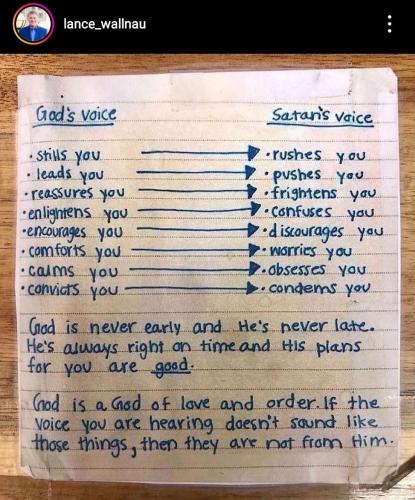 lance_wallnau
God's voice Satan's voice
• stills you • rushes you
• leads you • pushes you
• reassures you • frightens you
• enlightens you • confuses you
• encourages you • discourages you
• comforts you • worries you
• calms you • obsesses you
• convicts you • condems you
God is never early and He's never late.
He's always right on time and His plans
for you are good.
God is a God of love and order. If the
voice you are hearing doesn't sound like
those things, then they are not from Him.